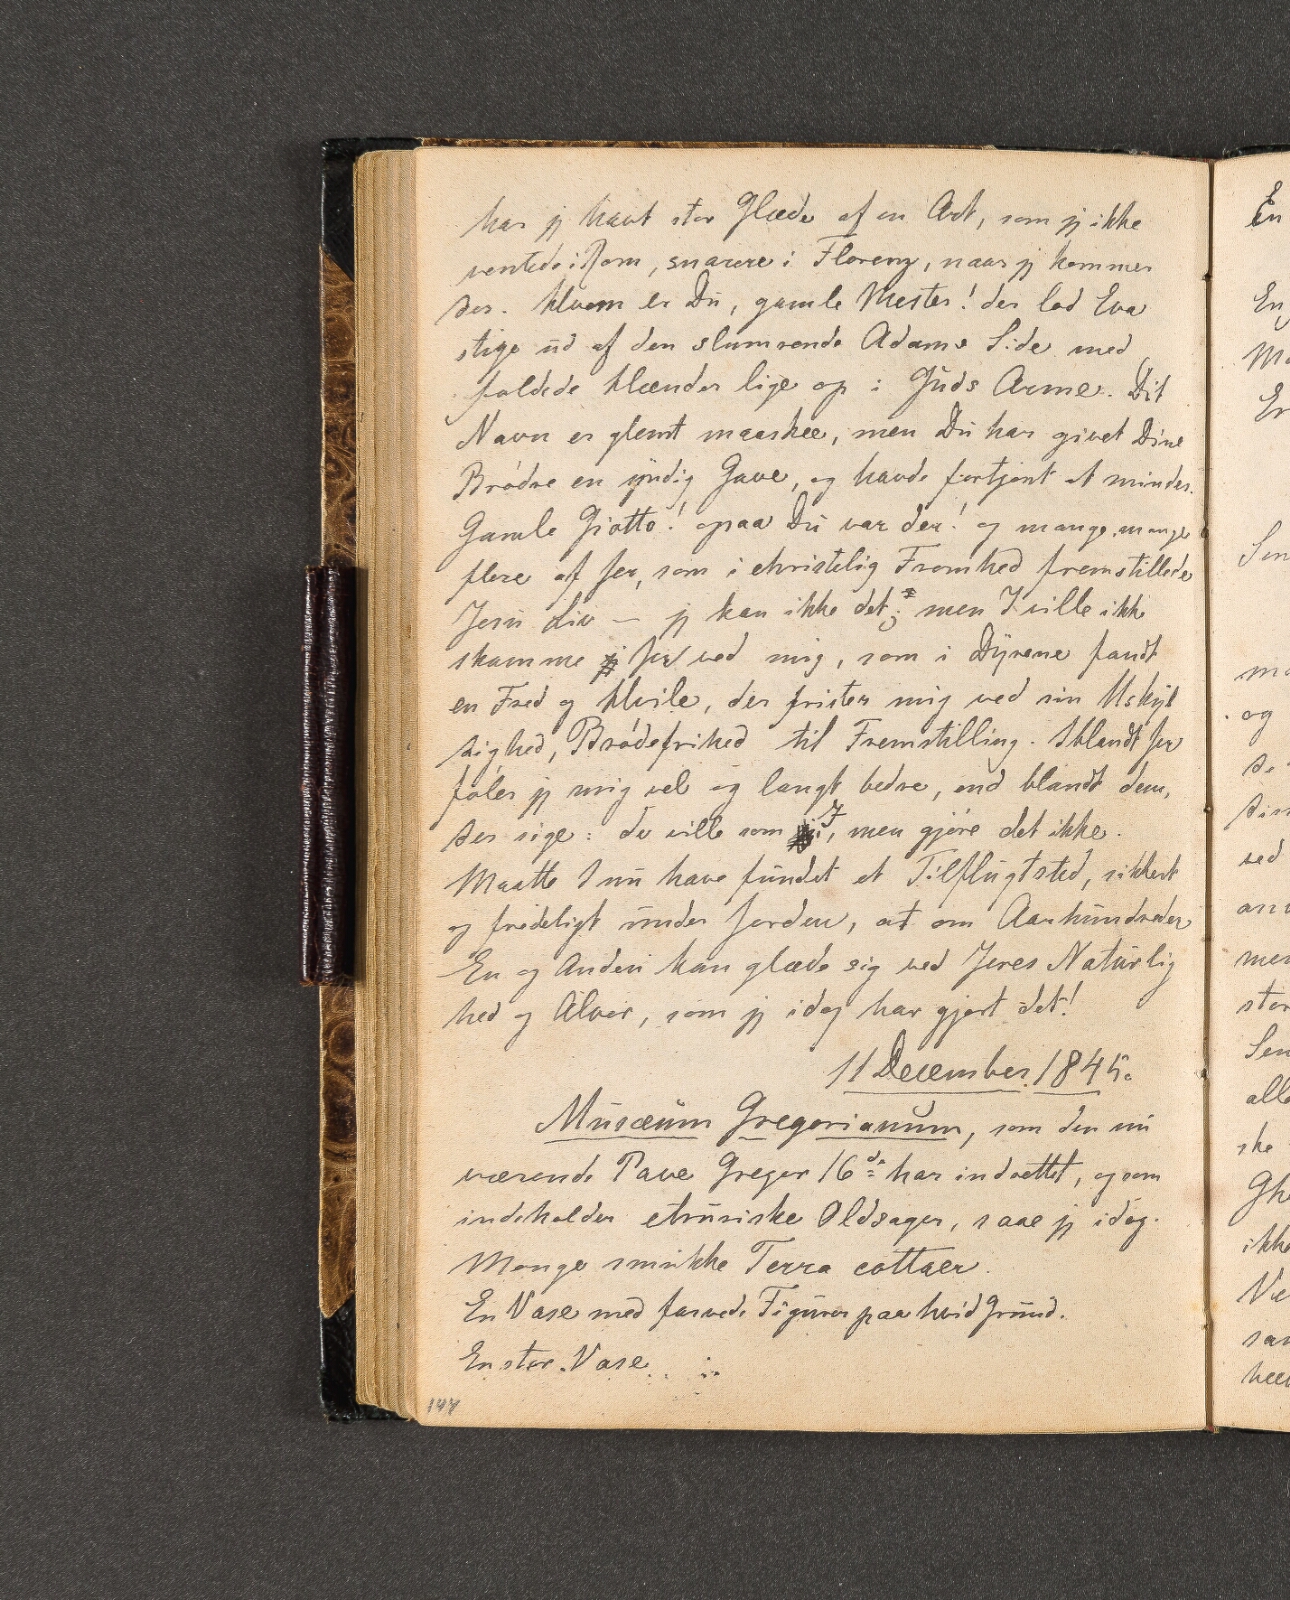 har jeg havt stor Glæde af en Art, som jeg ikke
ventede i Rom, snarere i Florenz, naar jeg kommer
der. Hvem er Du, gamle Mester! der lod Eva
stige ud af den slumrende Adams Side med
foldede Hænder lige op i Guds Arme. Dit
Navn er glemt maaskee, men Du har givet Dine
Brødre en yndig Gave, og havde fortjent at mindes.
Gamle Giotto! ogsaa Du var der! og mange, mange
flere af Jer, som i christelig Fromhed fremstillede
Jesu Liv — jeg kan ikke det; men I ville ikke
skamme Jer ved mig, som i Dyrene fandt
en Fred og Hvile, der frister mig ved sin Uskyl
dighed, Brødefrihed til Fremstilling. Iblandt Jer
føler jeg mig vel og langt bedre, end blandt dem,
der sige: de ville som I, men gjøre det ikke.
Maatte I nu have fundet et Tilflugtsted, sikkert
og fredeligt under Jorden, at om Aarhundreder
En og Anden kan glæde sig ved Jeres Naturlig
hed og Alvor, som jeg idag har gjort det!
11 December 1845.
Musæum Gregorianum, som den nu
værende Pave Gregor 16de har indrettet, og som
indeholder etruriske Oldsager, saae jeg idag.
Mange smukke Terra cottaer.
En Vase med farvede Figurer paa hvid Grund.
En stor Vase
147
En
En
Me
Er
Sen
og
de
ved
men
stor
Sen
alle
ske
Ghi
ikke